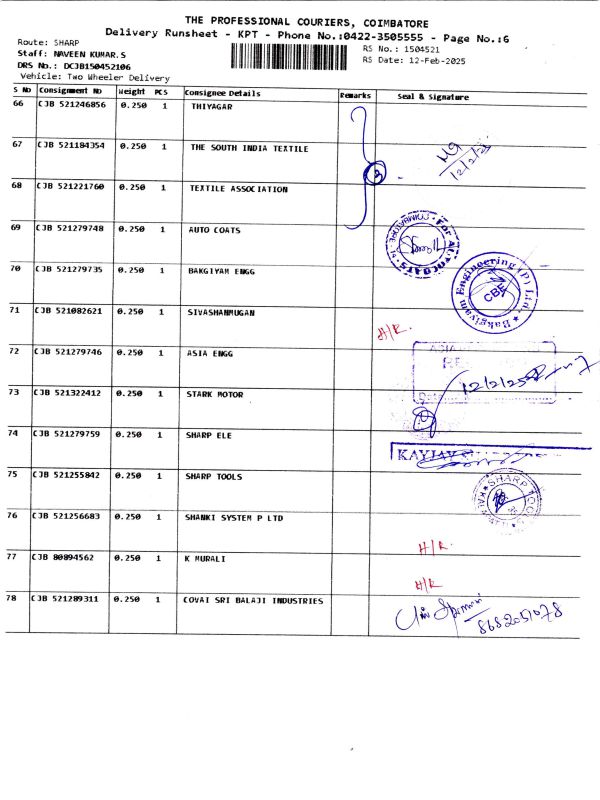 THE PROFESSIONAL COURIERS, COIMBATORE
Delivery Runsheet - KPT - Phone No.:0422-3505555 - Page No.:6
Route: SHARP
RS No.: 1504521
Staff: NAVEEN KUMAR.S
RS Date: 12-Feb-2025
DRS No.: DCJB150452106
Vehicle: Two Wheeler Delivery
S No Consignment No Weight PCS Consignee Details Remarks Seal & Signature
66 CJB 521246856 0.250 1 THIYAGAR
67 CJB 521184354 0.250 1 THE SOUTH INDIA TEXTILE
3
12/2/25
68 CJB 521221760 0.250 1 TEXTILE ASSOCIATION
69 CJB 521279748 0.250 1 AUTO COATS
70 CJB 521279735 0.250 1 BAKGIYAM ENGG
Bakgiyam Engineering (P) Ltd.
CBE
71 CJB 521082621 0.250 1 SIVASHANMUGAN
H/R.
72 CJB 521279746 0.250 1 ASIA ENGG
ASIA
12/2/25
73 CJB 521322412 0.250 1 STARK MOTOR
74 CJB 521279759 0.250 1 SHARP ELE
KAYJAY
75 CJB 521255842 0.250 1 SHARP TOOLS
SHARP TOOLS
76 CJB 521256683 0.250 1 SHANKI SYSTEM P LTD
H/R.
77 CJB 80894562 0.250 1 K MURALI
H/R
78 CJB 521289311 0.250 1 COVAI SRI BALAJI INDUSTRIES
8682051078